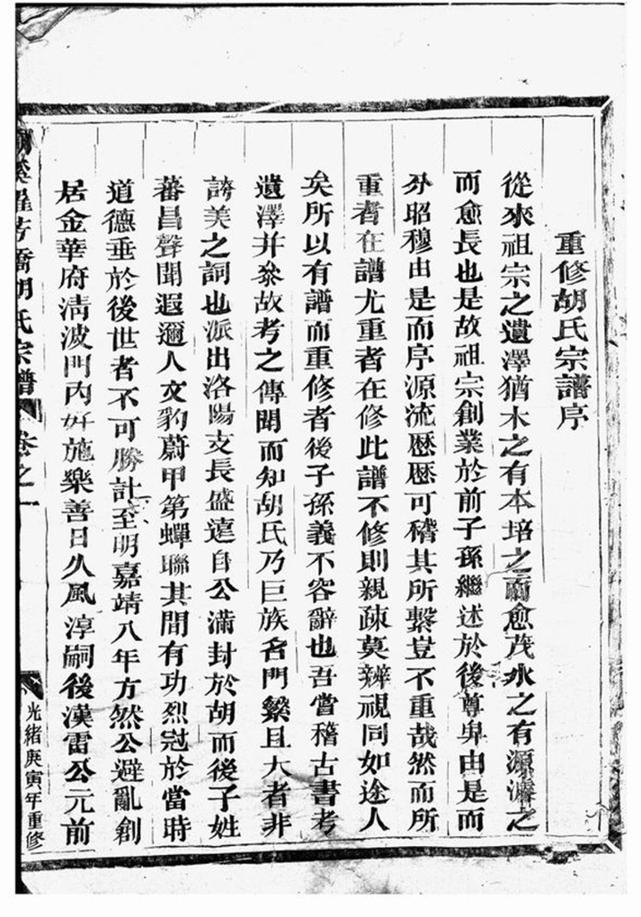 重修胡氏宗譜序
從來祖宗之遺澤猶木之有本培之而愈茂水之有源濬之
而愈長也是故祖宗創業於前子孫繼述於後尊卑由是而
分昭穆由是而序源流歷歷可稽其所繫豈不重哉然而所
重者在譜尤重者在修此譜不修則親疎莫辨視同如途人
矣所以有譜而重修者後子孫義不容辭也吾嘗稽古書考
遺澤并叅故考之傳聞而知胡氏乃巨族名門繁且大者非
誇美之詞也派出洛陽支長盛遠自公滿封於胡而後子姓
蕃昌聲聞遐邇人文豹蔚甲第蟬聯其間有功烈冠於當時
道德垂於後世者不可勝計至明嘉靖八年方然公避亂創
居金華府清波門內好施樂善日久風淳嗣後漢雷公元前
芳橋胡氏宗譜 卷之一 光緒庚寅年重修